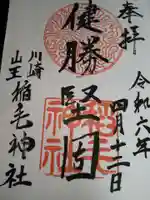 奉拝
令和六年
四月十二日
健勝堅固
川崎
山王稲毛神社